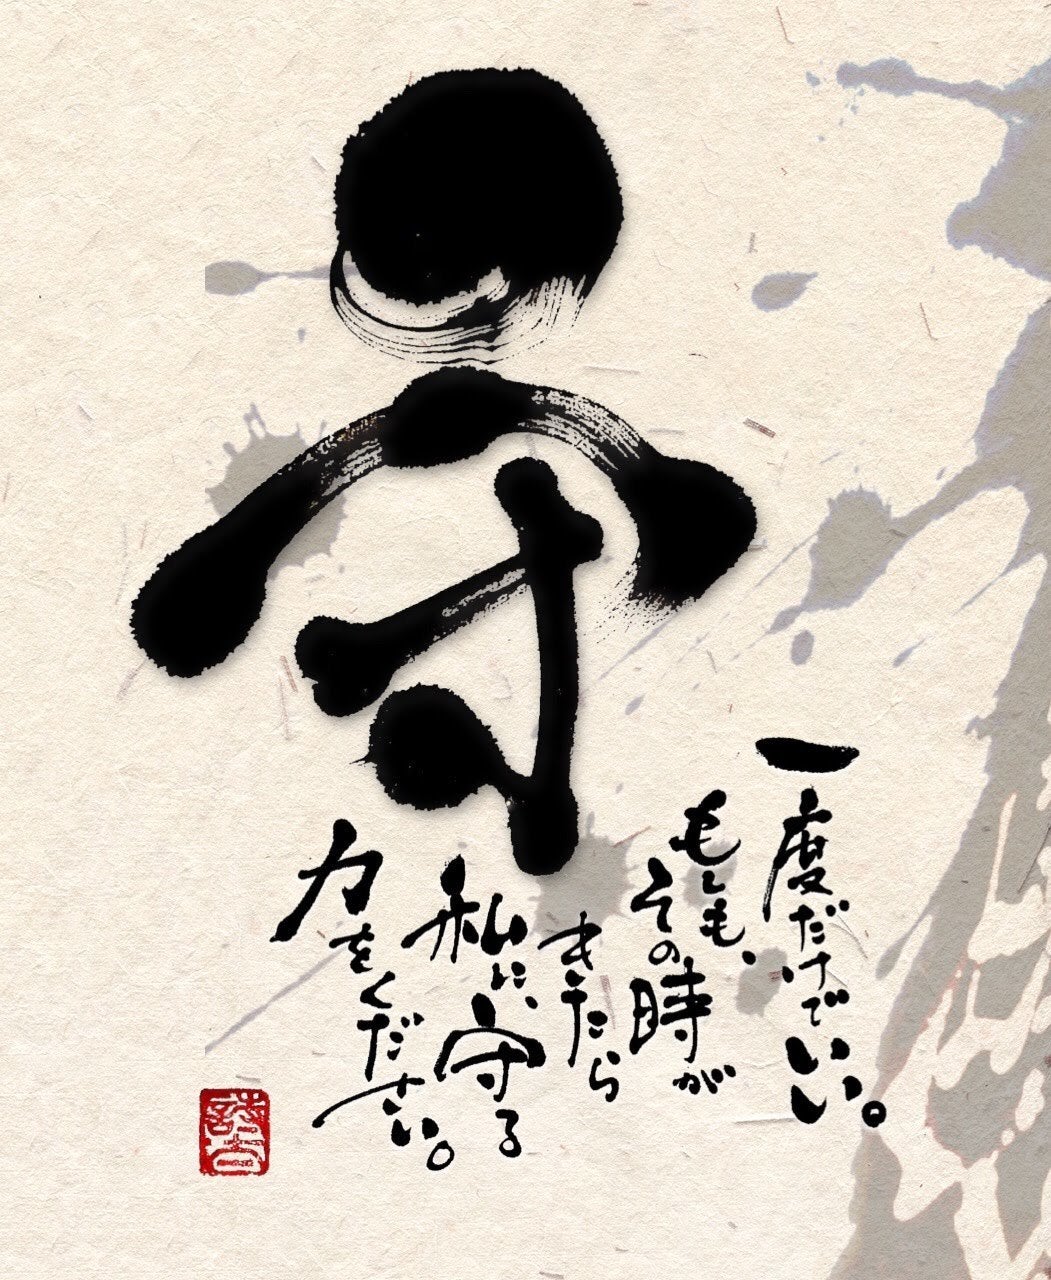 守
一度だけでいい。
もしも、
その時が
きたら
私に、
守る
力を
ください。